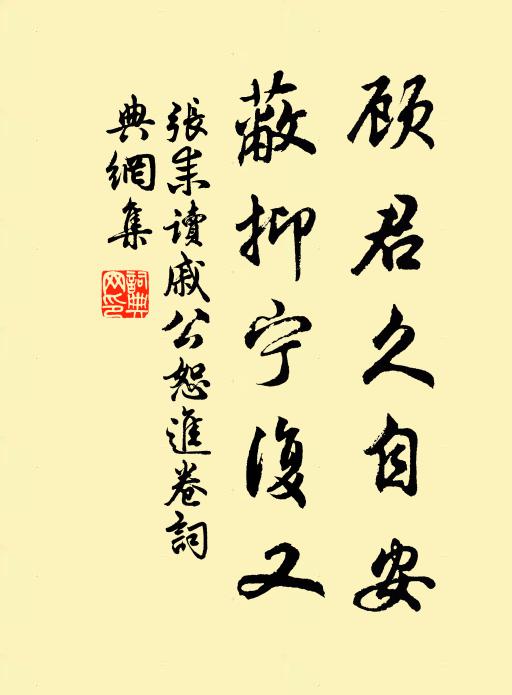 顾君久自安
蔽抑宁復又
張耒讀戚公恕進卷詞
典網集
詞典
网印